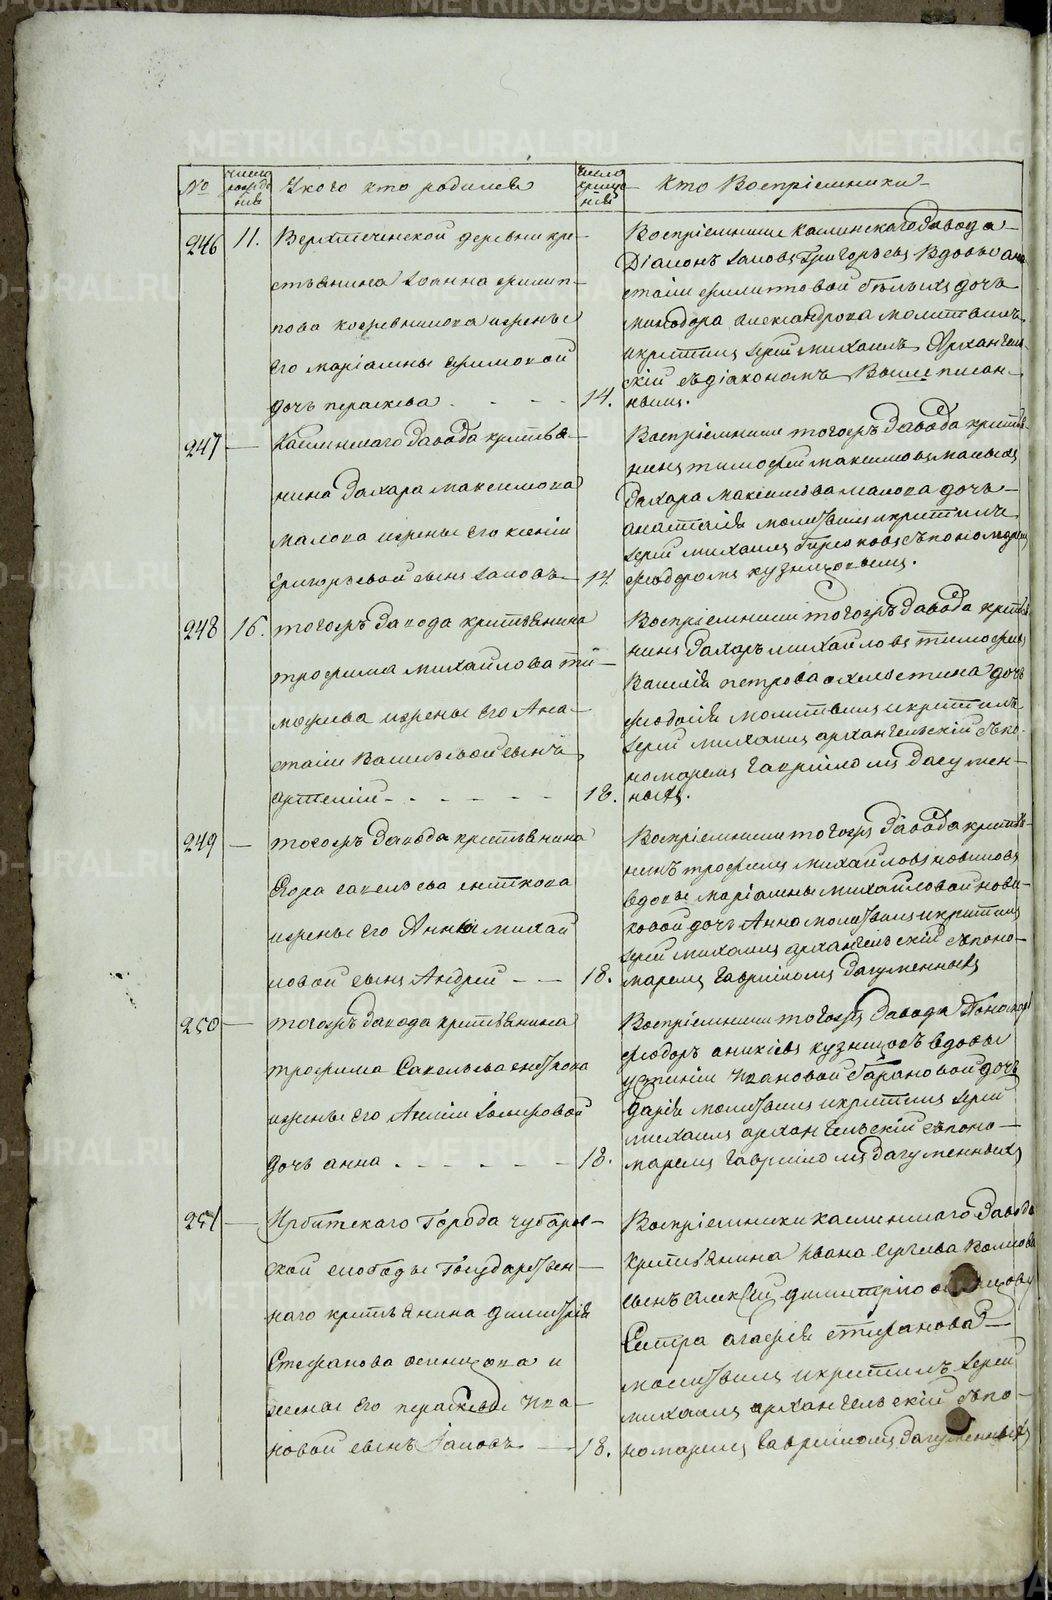 №
число рожде ния
У кого кто родился
число креще ния
Кто Восприемники
246
11.
Верхтеченской деревни кре-
стьянина Iоанна Филип-
пова Кожевникова и жены
его Марiамны Ефимовой
дочь Параскева
14.
Восприемники Каслинскаго завода
Дiаконъ Iаковъ Григорьевъ вдовы Ана
стасiи Филиповой Белыхъ дочь
Минодора Александрова молитвилъ
и крестилъ Iерей Михаилъ Архангел
скiй съ дiакономъ Вышеписан-
нымъ.
247
Каслинскаго завода крестья-
нина Захара Максимова
Малова и жены его Ксенiи
Григорьевой сынъ Iаковъ
14
Восприемники тогожъ завода крестья
нинъ Тимофей Максимовъ Маловъ
Захара Максимова Малова дочь
Анастасiя молитвилъ и крестилъ
Iерей Михаилъ съ пономаремъ
Феодоромъ Кузнецовымъ.
248
16.
тогожъ завода крестьянина
Трофима Михайлова Ти-
мофеева и жены его Ана-
стасiи Васильевой сынъ
Артемiй
18.
Восприемники тогожъ завода крестья
нинъ Захаръ Михайловъ Тимофеевъ
Василiя Петрова дочь
Феодосiя молитвилъ и крестилъ
Iерей Михаилъ Архангельскiй съ по-
номаремъ Гаврiиломъ Загумен-
ныхъ.
249
тогожъ завода крестьянина
Егора Савельева
и жены его Анны Михай
ловой сынъ Андрей
18.
Восприемники тогожъ завода крестья-
нинъ Трофимъ Михайловъ Новиковъ
вдовы Марiамны Михайловой Нови-
ковой дочь Анна молитвилъ и крестилъ
Iерей Михаилъ Архангельскiй съ поно-
маремъ Гаврiиломъ Загуменныхъ
250
тогожъ завода крестьянина
Трофима Савельева
и жены его
дочь Анна
18.
Восприемники тогожъ завода Понамарь
Феодоръ Аникiевъ Кузнецовъ вдовы
Устинiи Ивановой Барановой дочь
Дарiя молитвилъ и крестилъ Iерей
Михаилъ Архангельскiй съ поно-
маремъ Гаврiиломъ Загуменныхъ
251
Ирбитскаго города Чубаров-
ской слободы Государствен-
наго крестьянина Димитрiя
Стефанова Осинцова и
жены его Параскевы Ива-
новой сынъ Iаковъ
18.
Восприемники Каслинскаго завода
крестьянина Ивана Сергеева
сынъ Алексiй Димитрiя
Сестра Агафiя Стефанова
молитвилъ и крестилъ Iерей
Михаилъ Архангельскiй съ по-
номаремъ Гаврiиломъ Загуменныхъ
METRIKI.GASO-URAL.RU